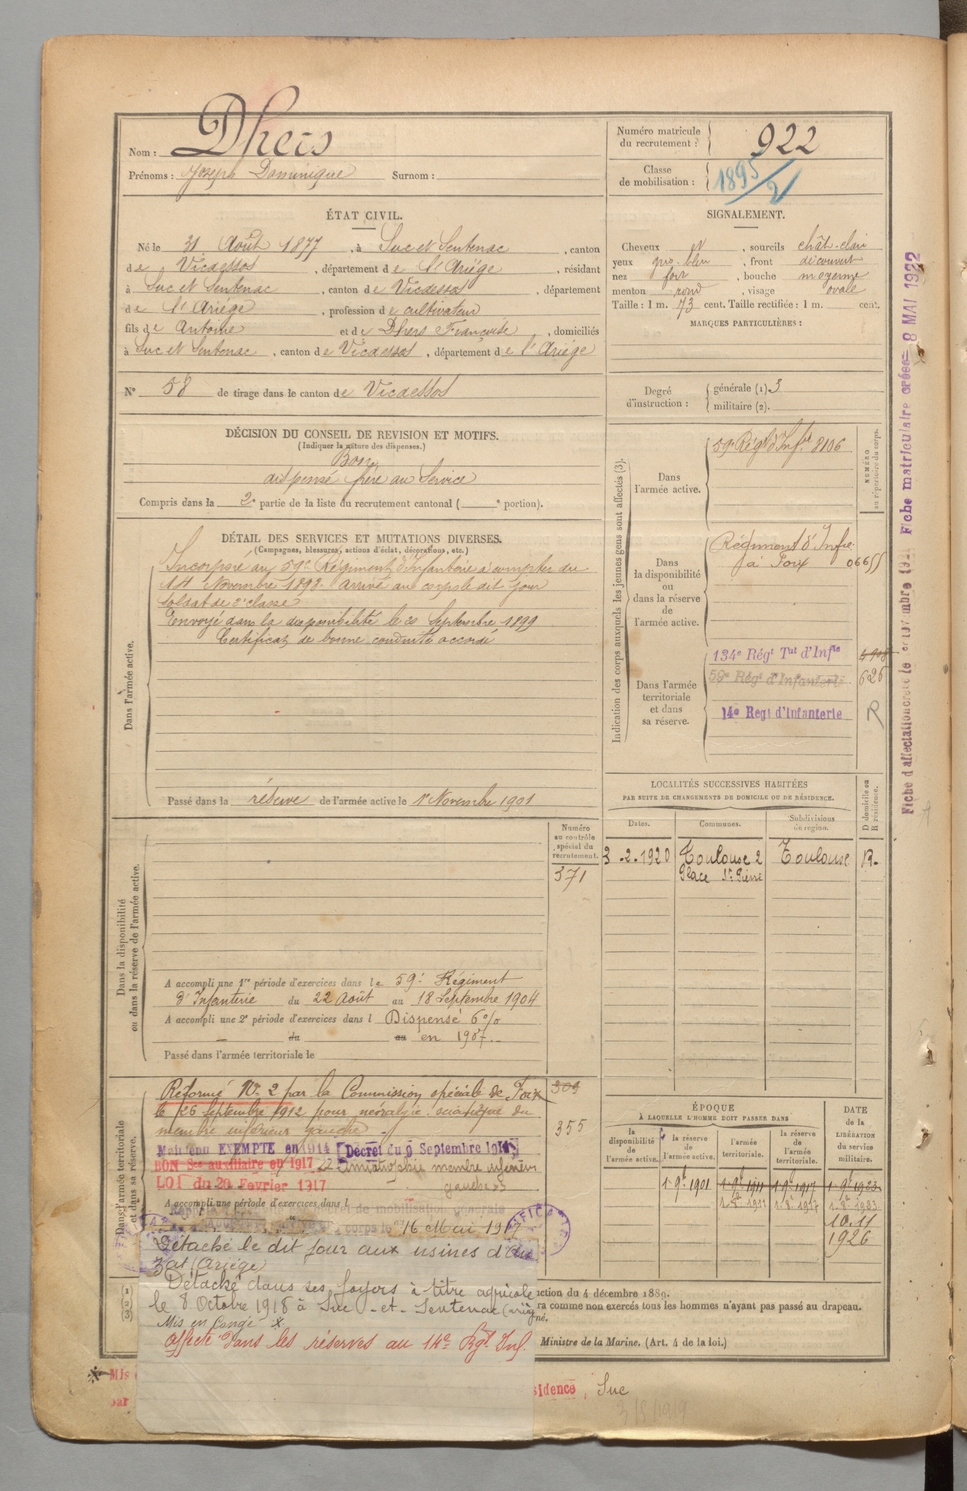 Nom : Dhers
Prénoms : Joseph Dominique Surnom :
Numéro matricule du recrutement : 922
Classe de mobilisation : 1895/2
ÉTAT CIVIL.
Né le 31 Août 1877, à Suc et Sentenac, canton
de Vicdessos, département de l'Ariége, résidant
à Suc et Sentenac, canton de Vicdessos, département
de l'Ariége, profession de cultivateur
fils de Antoine et de Dhers Françoise, domiciliés
à Suc et Sentenac, canton de Vicdessos, département de l'Ariége
N° 58 de tirage dans le canton de Vicdessos
SIGNALEMENT.
Cheveux et, sourcils chât-clair
yeux gris-bleu, front découvert
nez fort, bouche moyenne
menton rond, visage ovale
Taille : 1 m. 73 cent. Taille rectifiée : 1 m. cent.
MARQUES PARTICULIÈRES :
Degré d'instruction : générale (1) 3
militaire (2).
DÉCISION DU CONSEIL DE REVISION ET MOTIFS.
(Indiquer la nature des dispenses.)
Bon
dispensé frère au Service
Compris dans la 2e partie de la liste du recrutement cantonal ( e portion).
DÉTAIL DES SERVICES ET MUTATIONS DIVERSES.
(Campagnes, blessures, actions d'éclat, décorations, etc.)
Dans l'armée active.
Incorporé au 59e Régiment d'Infanterie à compter du
14 Novembre 1898 Arrivé au corps le dit jour
soldat de 2e classe
Envoyé dans la disponibilité le 20 Septembre 1899
Certificat de bonne conduite accordé
Passé dans la réserve de l'armée active le 1er Novembre 1901
Indication des corps auxquels les jeunes gens sont affectés (3).
NUMÉRO au répertoire du corps.
Dans l'armée active.
59e Régt d'Inf. 8106
Dans la disponibilité ou dans la réserve de l'armée active.
Régiment d'Infie
à Foix 06655
Dans l'armée territoriale et dans sa réserve.
134e Régt Tal d'Infie
59e Régt d'Infanterie 626
14e Régt d'Infanterie R
LOCALITÉS SUCCESSIVES HABITÉES
PAR SUITE DE CHANGEMENTS DE DOMICILE OU DE RÉSIDENCE.
D domicile ou R résidence.
Dates. Communes. Subdivisions de région.
3.2.1920 Toulouse 2 Toulouse R.
Place St Pierre
Dans la disponibilité ou dans la réserve de l'armée active.
Numéro au contrôle spécial du recrutement.
371
A accompli une 1re période d'exercices dans le 59e Régiment
d'Infanterie du 22 Août au 18 Septembre 1904
A accompli une 2e période d'exercices dans l Dispensé 6%
du au en 1907
Passé dans l'armée territoriale le
Dans l'armée territoriale et dans sa réserve.
Réformé No 2 par la Commission spéciale de Foix
le 26 Septembre 1912 pour névralgie sciatique du
membre inférieur gauche
309
355
Maintenu EXEMPTE en 1914 Décret du 9 Septembre 1914
BON Ser auxiliaire en 1917
LOI du 20 Fevrier 1917
membre inférieur
gauche
A accompli une période d'exercices dans l
de mobilisation générale
corps le 16 Mai 1917
Détaché le dit jour aux usines d'Au
zat (Ariége)
Détaché dans ses foyers à titre agricole
le 8 Octobre 1918 à Suc-et-Sentenac
Mis en congé *
Affecté dans les réserves au 14e Rgt Inf.
ÉPOQUE À LAQUELLE L'HOMME DOIT PASSER DANS
la disponibilité de l'armée active.
la réserve de l'armée active.
l'armée territoriale.
la réserve de l'armée territoriale.
DATE DE LA LIBÉRATION du service militaire.
10.11
1926
action du 4 décembre 1889.
ra comme non exercés tous les hommes n'ayant pas passé au drapeau.
Ministre de la Marine. (Art. 4 de la loi.)
* Mis
par
sidence, Suc
8 MAI 1922
Fiche matriculaire créée